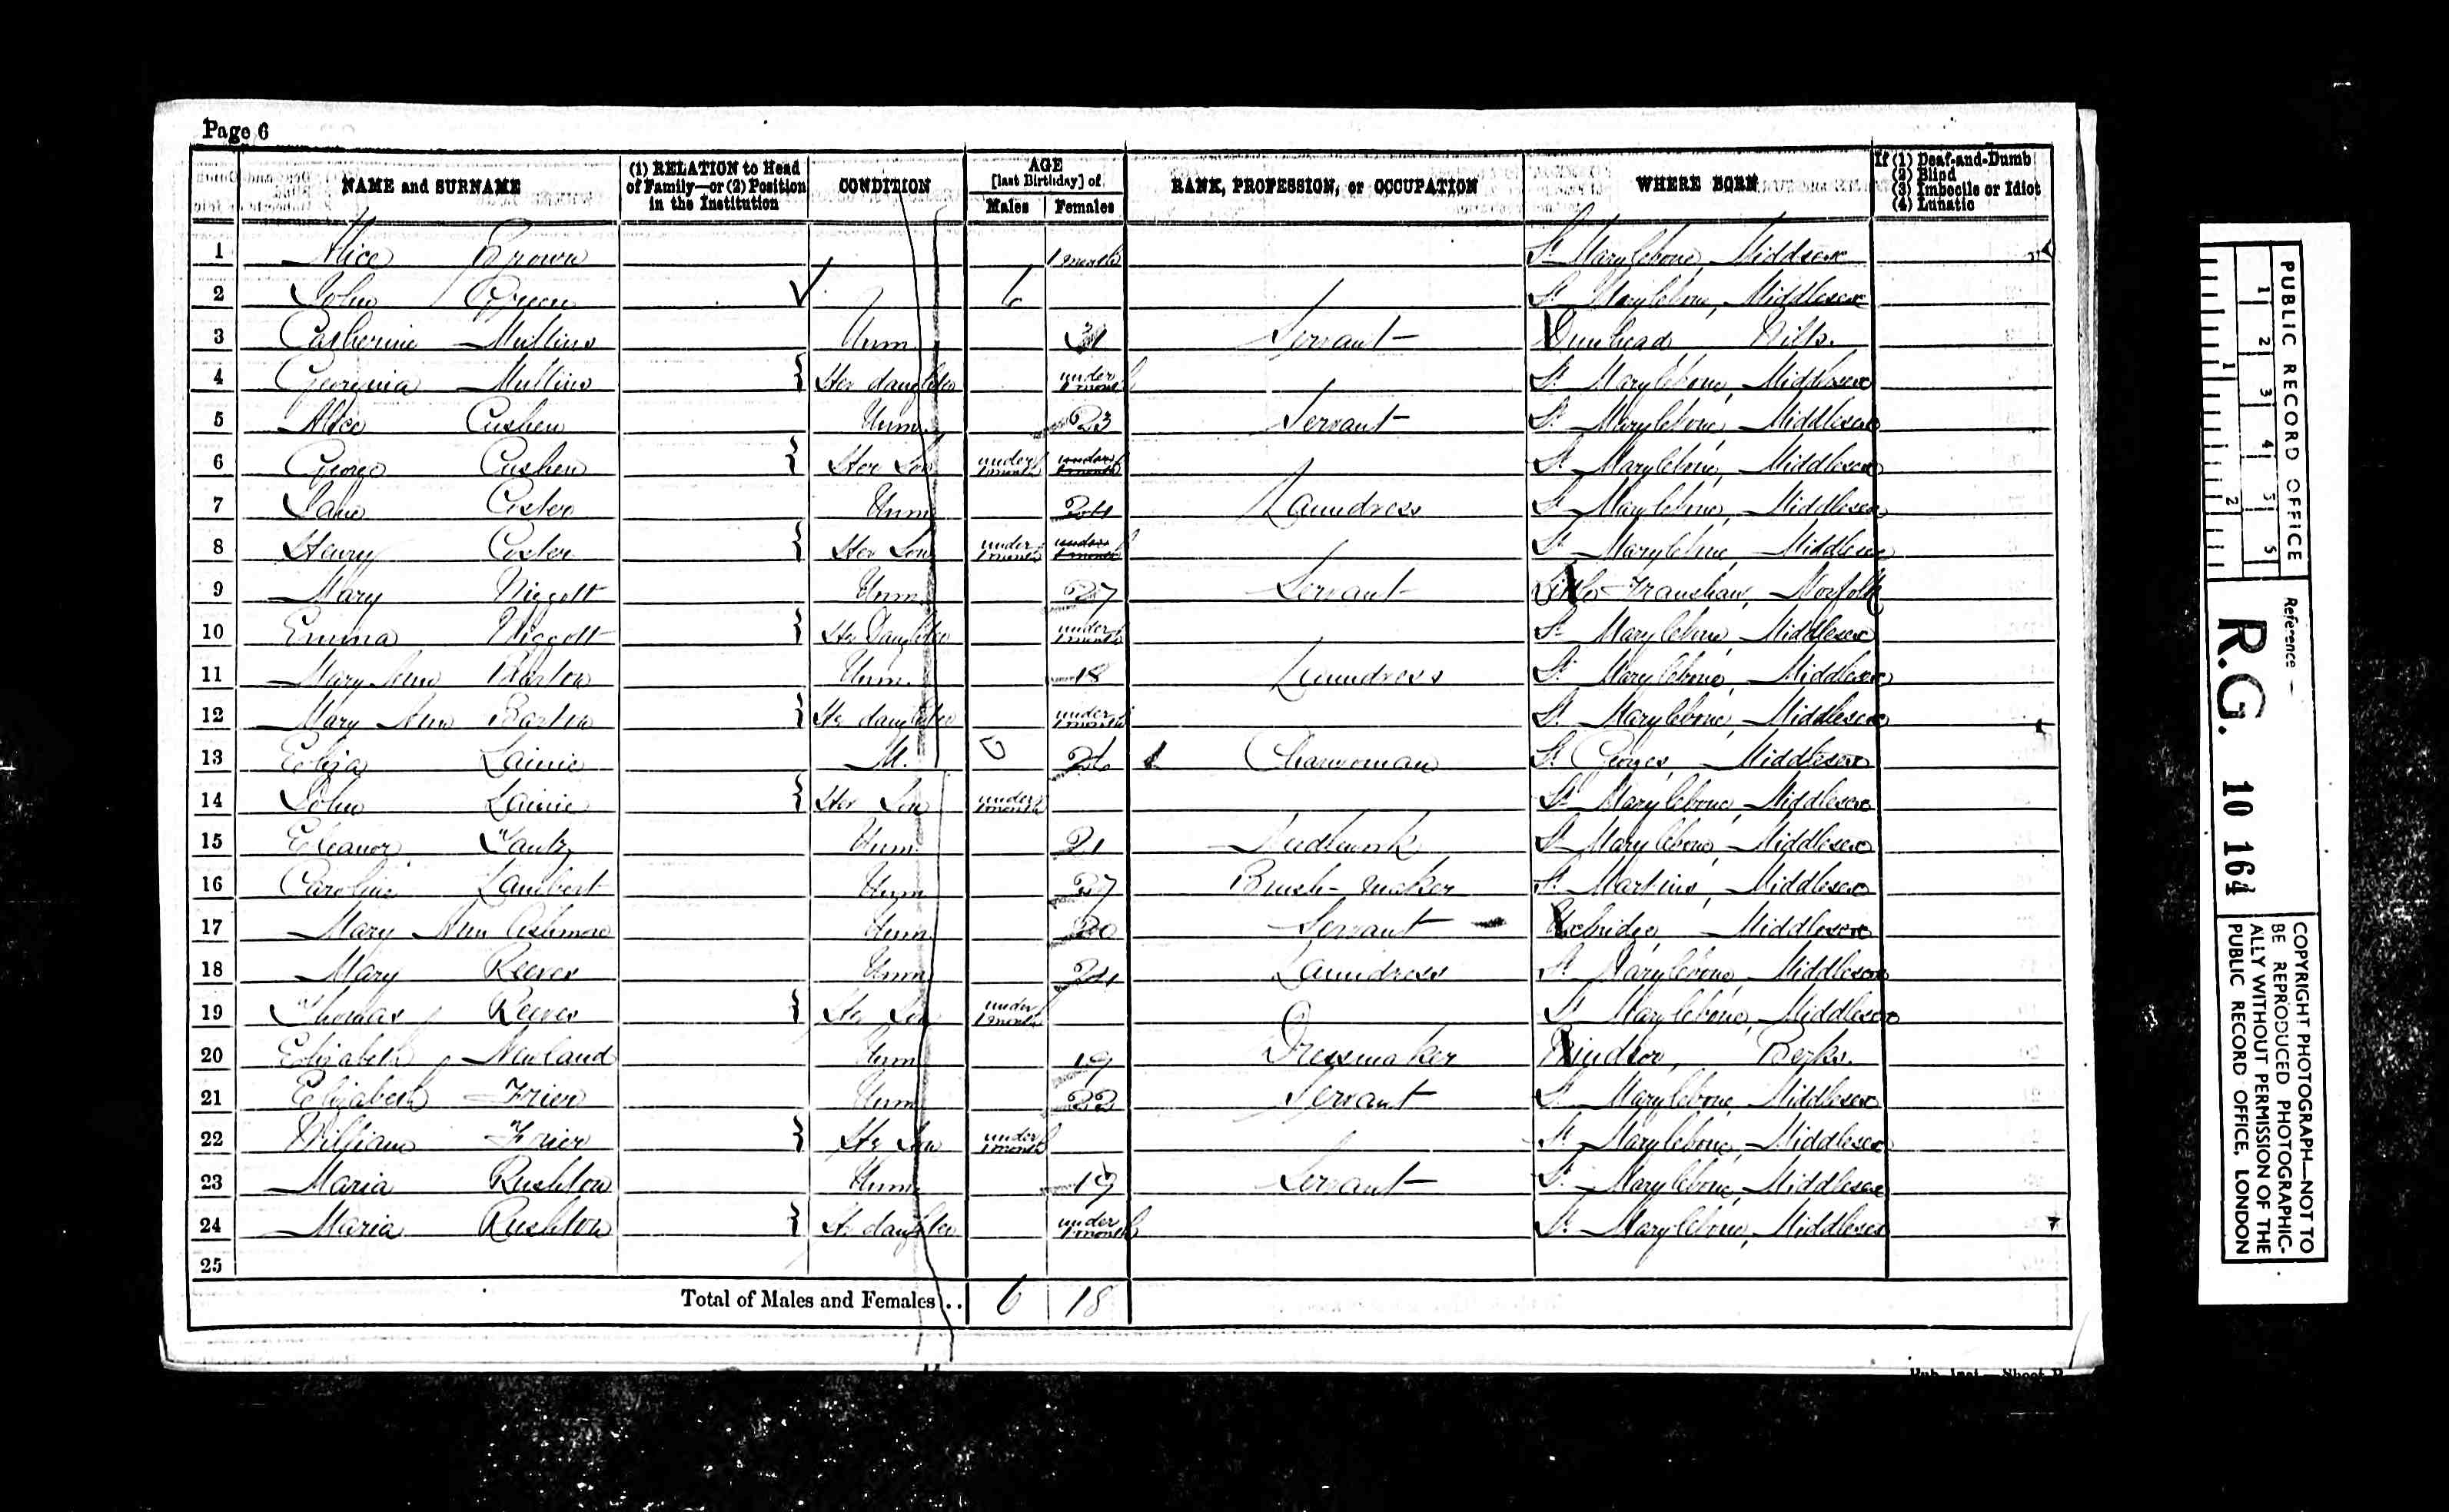 Page 6
NAME and SURNAME (1) RELATION to Head of Family—or (2) Position in the Institution CONDITION AGE [last Birthday] of Males Females RANK, PROFESSION, or OCCUPATION WHERE BORN If (1) Deaf-and-Dumb (2) Blind (3) Imbecile or Idiot (4) Lunatic
1 Alice Brown 1 month St Marylebone, Middsex
2 John Green 6 St Marylebone, Middlesex
3 Catherine Mullins Unm 31 Servant Wilts.
4 Georgina Mullins } Her daughter under 1 month St Marylebone, Middlesex
5 Alice Cushen Unm 23 Servant St Marylebone, Middlesex
6 George Cushen } Her Son under 1 month under 1 month St Marylebone, Middlesex
7 Jane Coster Unm 24 Laundress St Marylebone, Middlesex
8 Henry Coster } Her Son under 1 month under 1 month St Marylebone, Middlesex
9 Mary Unm 27 Servant Little Fransham, Norfolk
10 Emma } Her Daughter under 1 month St Marylebone, Middlesex
11 Mary Ann Barton Unm. 18 Laundress St Marylebone, Middlesex
12 Mary Ann Barton } Her daughter under 1 month St Marylebone, Middlesex
13 Eliza Lainie M. 26 Charwoman St Georges, Middlesex
14 John Lainie } Her Son under 1 month St Marylebone, Middlesex
15 Eleanor Unm 21 Needlework St Marylebone, Middlesex
16 Caroline Lambert Unm 27 Brush-maker St Martins, Middlesex
17 Mary Ann Ashmore Unm 20 Servant Uxbridge Middlesex
18 Mary Reeves Unm 24 Laundress St Marylebone, Middlesex
19 Thomas Reeves } Her Son under 1 month St Marylebone, Middlesex
20 Elizabeth Newland Unm 19 Dressmaker Windsor, Berks.
21 Elizabeth Frier Unm 22 Servant St Marylebone Middlesex
22 William Frier } Her Son under 1 month St Marylebone, Middlesex
23 Maria Rushton Unm 19 Servant St Marylebone, Middlesex
24 Maria Rushton } Her daughter under 1 month St Marylebone, Middlesex
25
Total of Males and Females .. 6 18
PUBLIC RECORD OFFICE
1 2 3 4 5
1 2
Reference —
R.G. 10 164
COPYRIGHT PHOTOGRAPH—NOT TO
BE REPRODUCED PHOTOGRAPHIC-
ALLY WITHOUT PERMISSION OF THE
PUBLIC RECORD OFFICE, LONDON